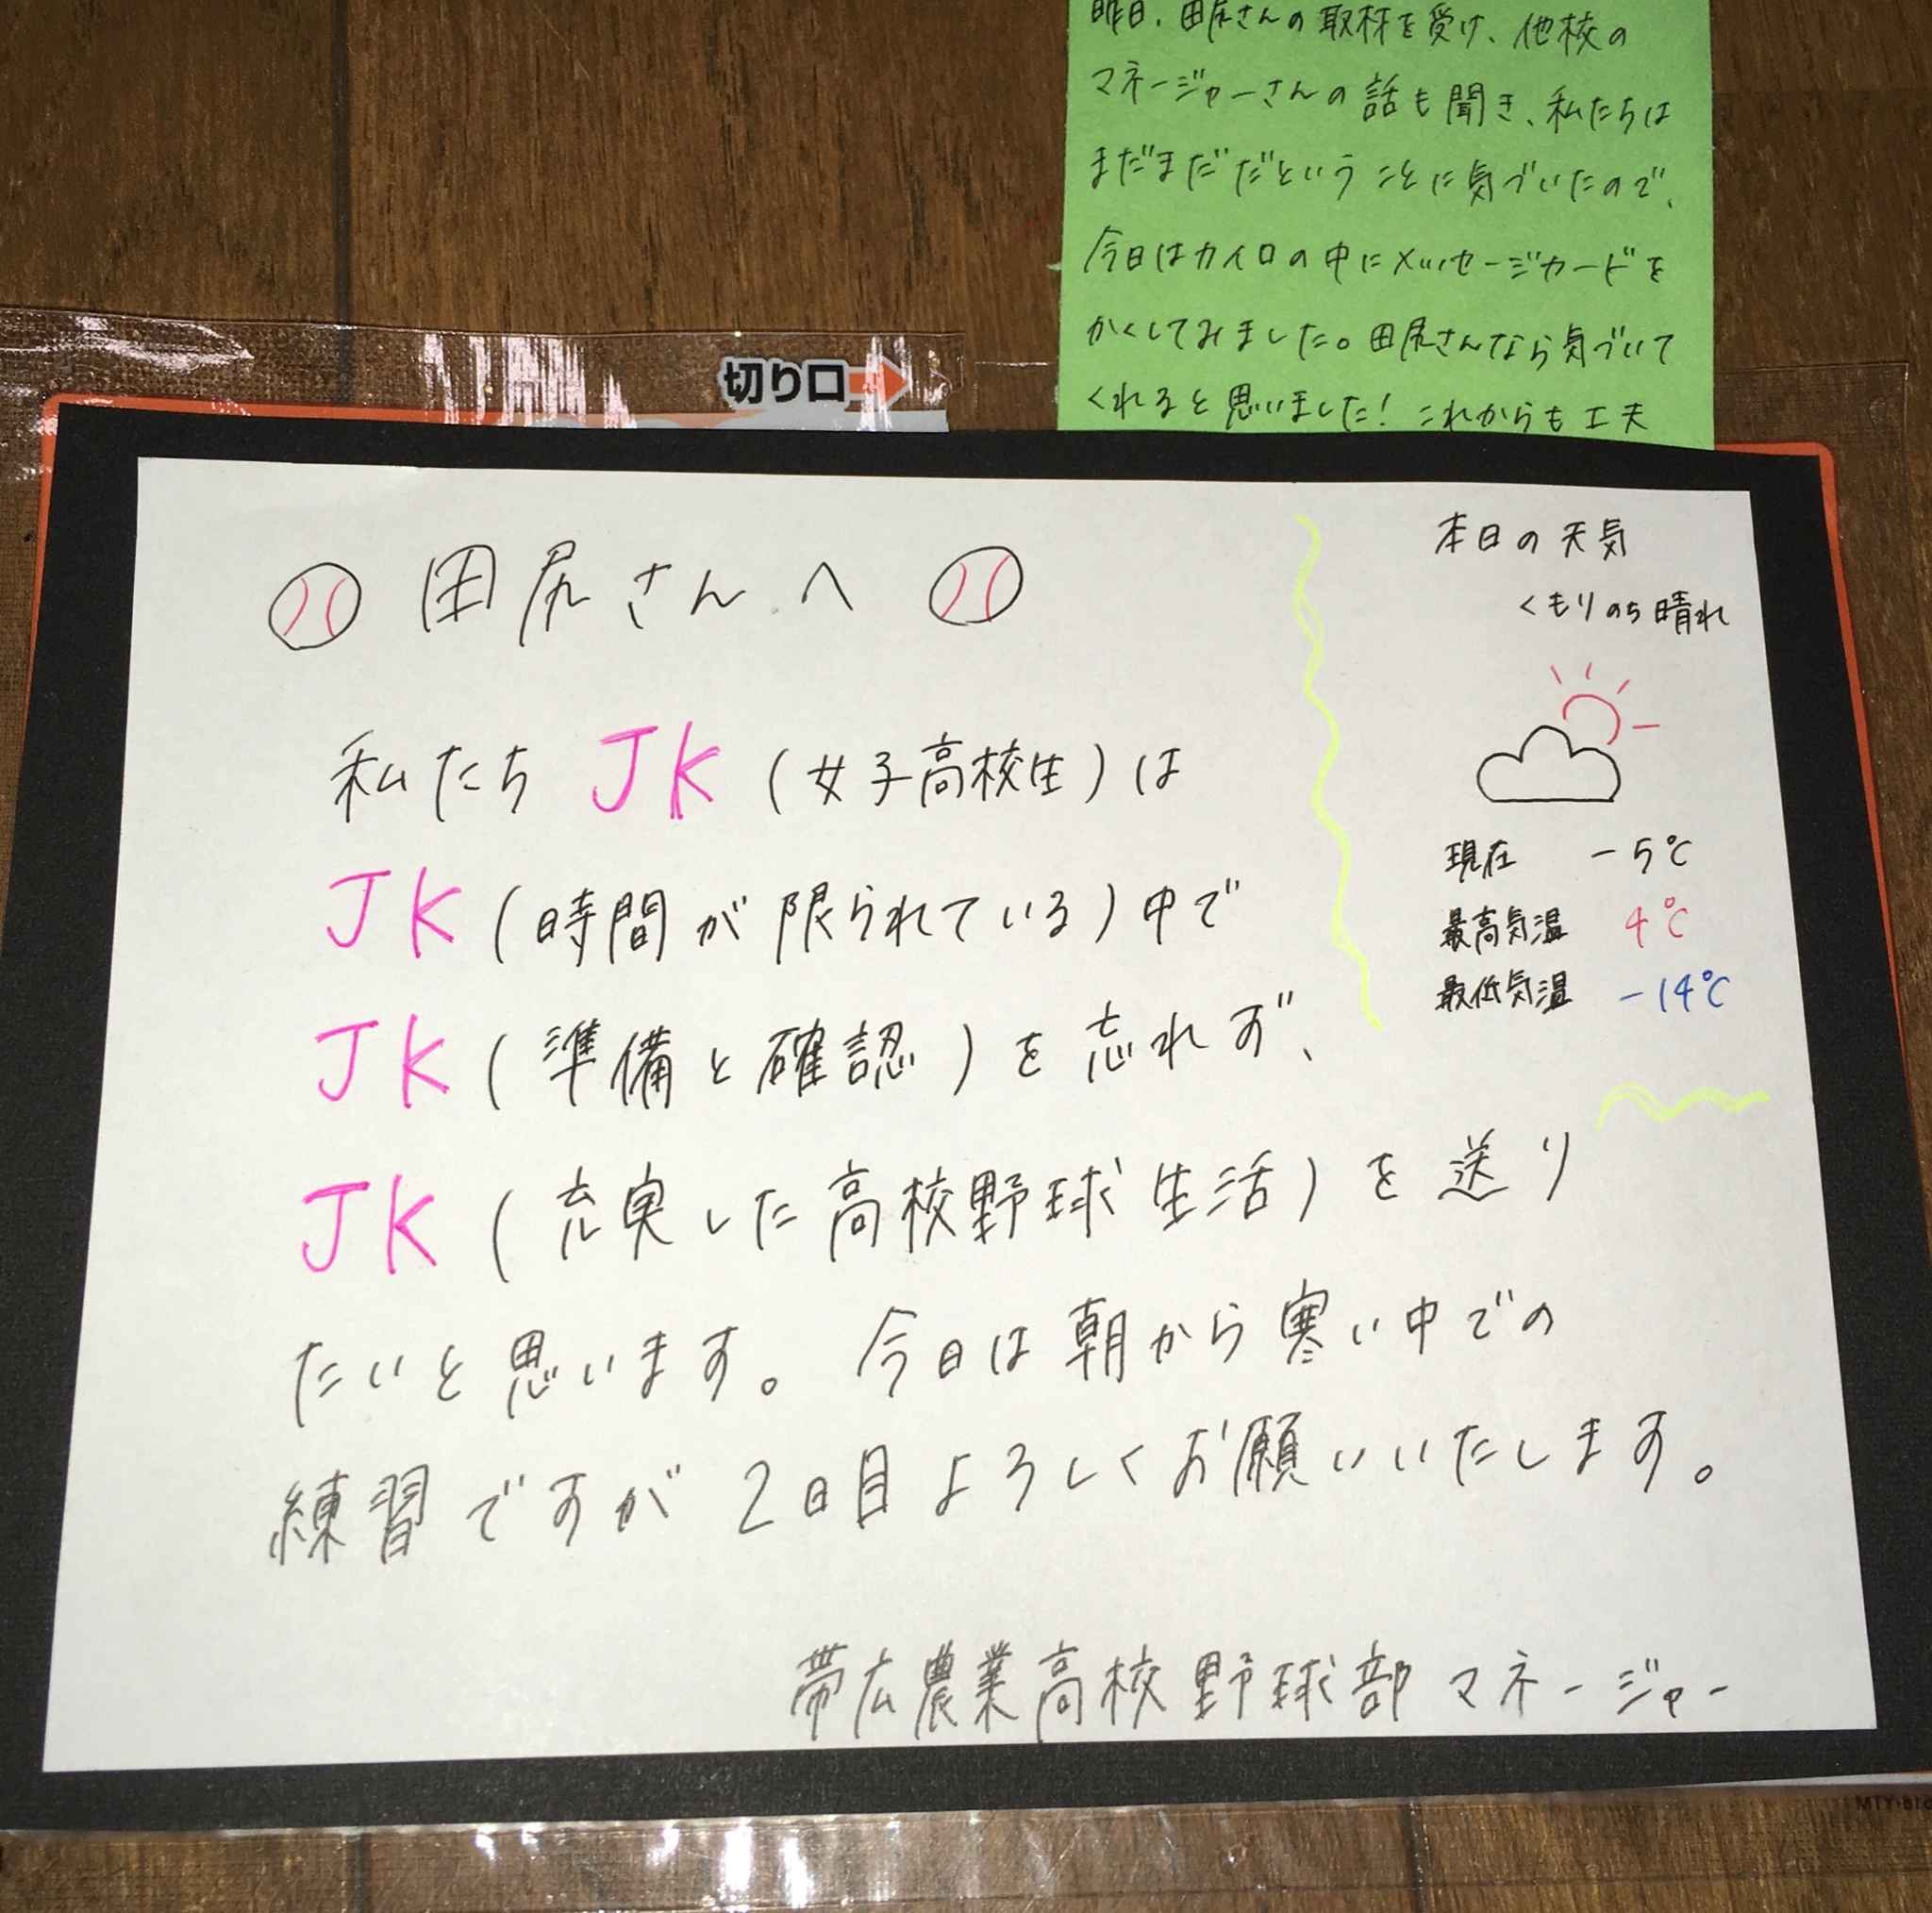 昨日、田尻さんの取材を受け、他校の
マネージャーさんの話も聞き、私たちは
まだまだだということに気づいたので、
今日はカイロの中にメッセージカードを
かくしてみました。田尻さんなら気づいて
くれると思いました！これからも工夫
切り口
田尻さんへ
私たちJK（女子高校生）は
JK（時間が限られている）中で
JK（準備と確認）を忘れず、
JK（充実した高校野球生活）を送り
たいと思います。今日は朝から寒い中での
練習ですが2日目よろしくお願いいたします。
帯広農業高校野球部マネージャー
本日の天気
くもりのち晴れ
現在 -5℃
最高気温 4℃
最低気温 -14℃